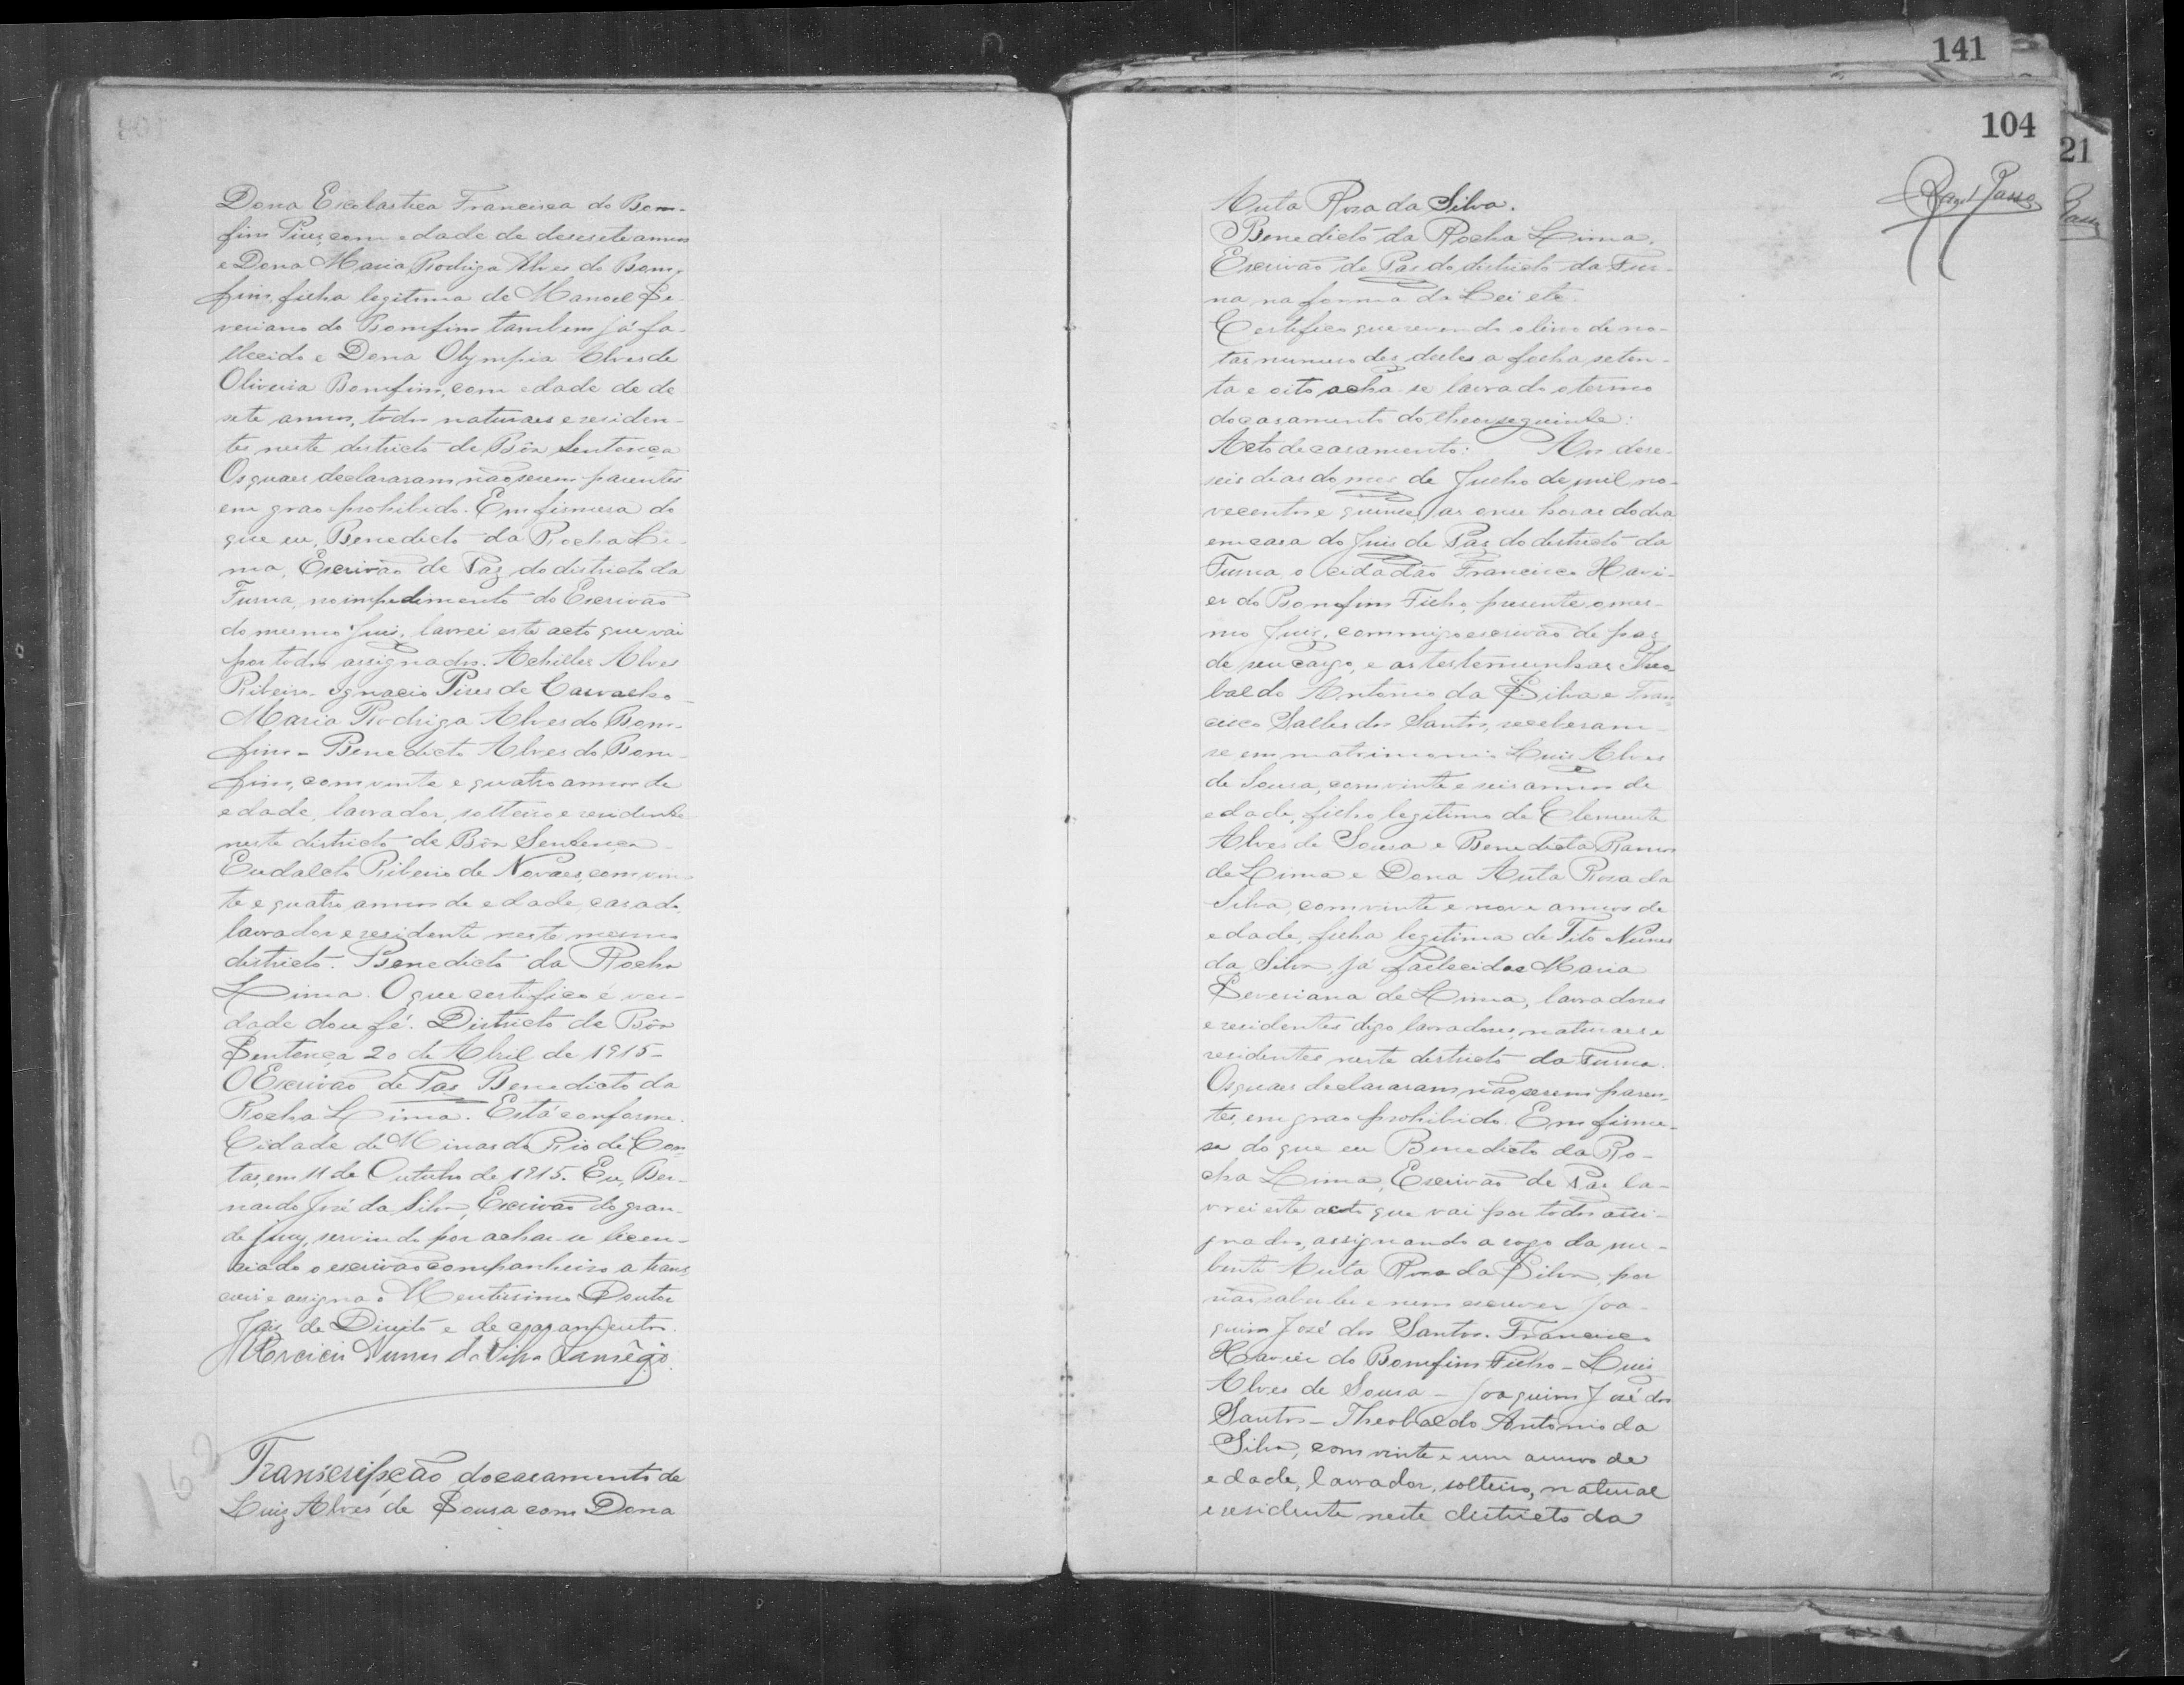 141
104
21
Dona Escolastica Francisca do Bom-
fim Pires, com edade de desesete annos
e Dona Maria Rodriga Alves do Bom-
fim, filha legitima de Manoel Se-
veriano do Bomfim tambem já fa-
llecido e Dona Olympia Alves de
Oliveira Bomfim, com edade de de
sete annos, todos naturaes e residen-
tes neste districto de Bôa Sentença
Os quaes declararam não serem parentes
em grao prohibido. Em firmesa do
que eu, Benedicto da Rocha Li-
ma, Escrivão de Paz do districto da
Furna, no impedimento do Escrivão
do mesmo Juis, lavrei este acto que vai
por todos assignados. Achilles Alves
Ribeiro. Ignacio Pires de Carvalho
Maria Rodriga Alves do Bom-
fim - Benedicto Alves do Bom-
fim, com vinte e quatro annos de
edade, lavrador, solteiro e residente
neste districto de Bôa Sentença
Eudalcto Ribeiro de Novaes, com vin-
te e quatro annos de edade, casado,
lavrador e residente neste mesmo
districto. Benedicto da Rocha
Lima. O que certifico é ver-
dade dou fé. Districto de Bôa
Sentença 20 de Abril de 1915-
O Escrivão de Pas Benedicto da
Rocha Lima. Está conforme.
Cidade de Minas do Rio de Con-
tas, em 11 de Outubro de 1915. Eu, Ber-
nardo José da Silva, Escrivão do gran-
de jury, servindo por achar-se licen-
ciado o escrivão companheiro a trans
crevi e assigna o Meritissimo Doutor
Juis de Direito e de casamentos.
Nunes da Silva
162
Transcripção do casamento de
Luiz Alves de Sousa com Dona
Auta Rosa da Silva.
Benedicto da Rocha Lima,
Escrivão de Pas do districto da Fur-
na na forma da Lei etc.
Certifico que revendo o livro de no-
tas numero des delles a folha seten-
ta e oito acha-se lavrado o termo
do casamento do theor seguinte:
Acto de casamento: Aos dese-
seis dias do mes de Julho de mil no-
vecentos e quinse, as onse horas do dia
em casa do Juis de Paz do districto da
Furna, o cidadão Francisco Xavi-
er do Bomfim Filho, presente o mes-
mo Juiz, commigo escrivão de paz
de seu cargo, e as testemunhas Theo-
baldo Antonio da Silva e Fran-
cisco Salles dos Santos, receberam-
se em matrimonio Luis Alves
de Sousa, com vinte e seis annos de
edade, filho legitimo de Clemente
Alves de Sousa e Benedicta Ramos
de Lima e Dona Auta Rosa da
Silva, com vinte e nove annos de
edade, filha legitima de Tito Nunes
da Silva, já fallecido e Maria
Severiana de Lima, lavradores
e residentes digo lavradores, naturaes e
residentes neste districto da Furna.
Os quaes declararam não serem paren-
tes, em grao prohibido. Em firme-
sa do que eu Benedicto da Ro-
cha Lima, Escrivão de Paz la-
vrei este acto que vai por todos assi-
gnados, assignando a rogo da nu-
bente Auta Rosa da Silva, por
não saber ler e nem escrever Joa-
quim José dos Santos. Francisco
Xavier do Bomfim Filho - Luis
Alves de Sousa - Joaquim José dos
Santos - Theobaldo Antonio da
Silva, com vinte e um annos de
edade, lavrador, solteiro, natural
e residente neste districto da